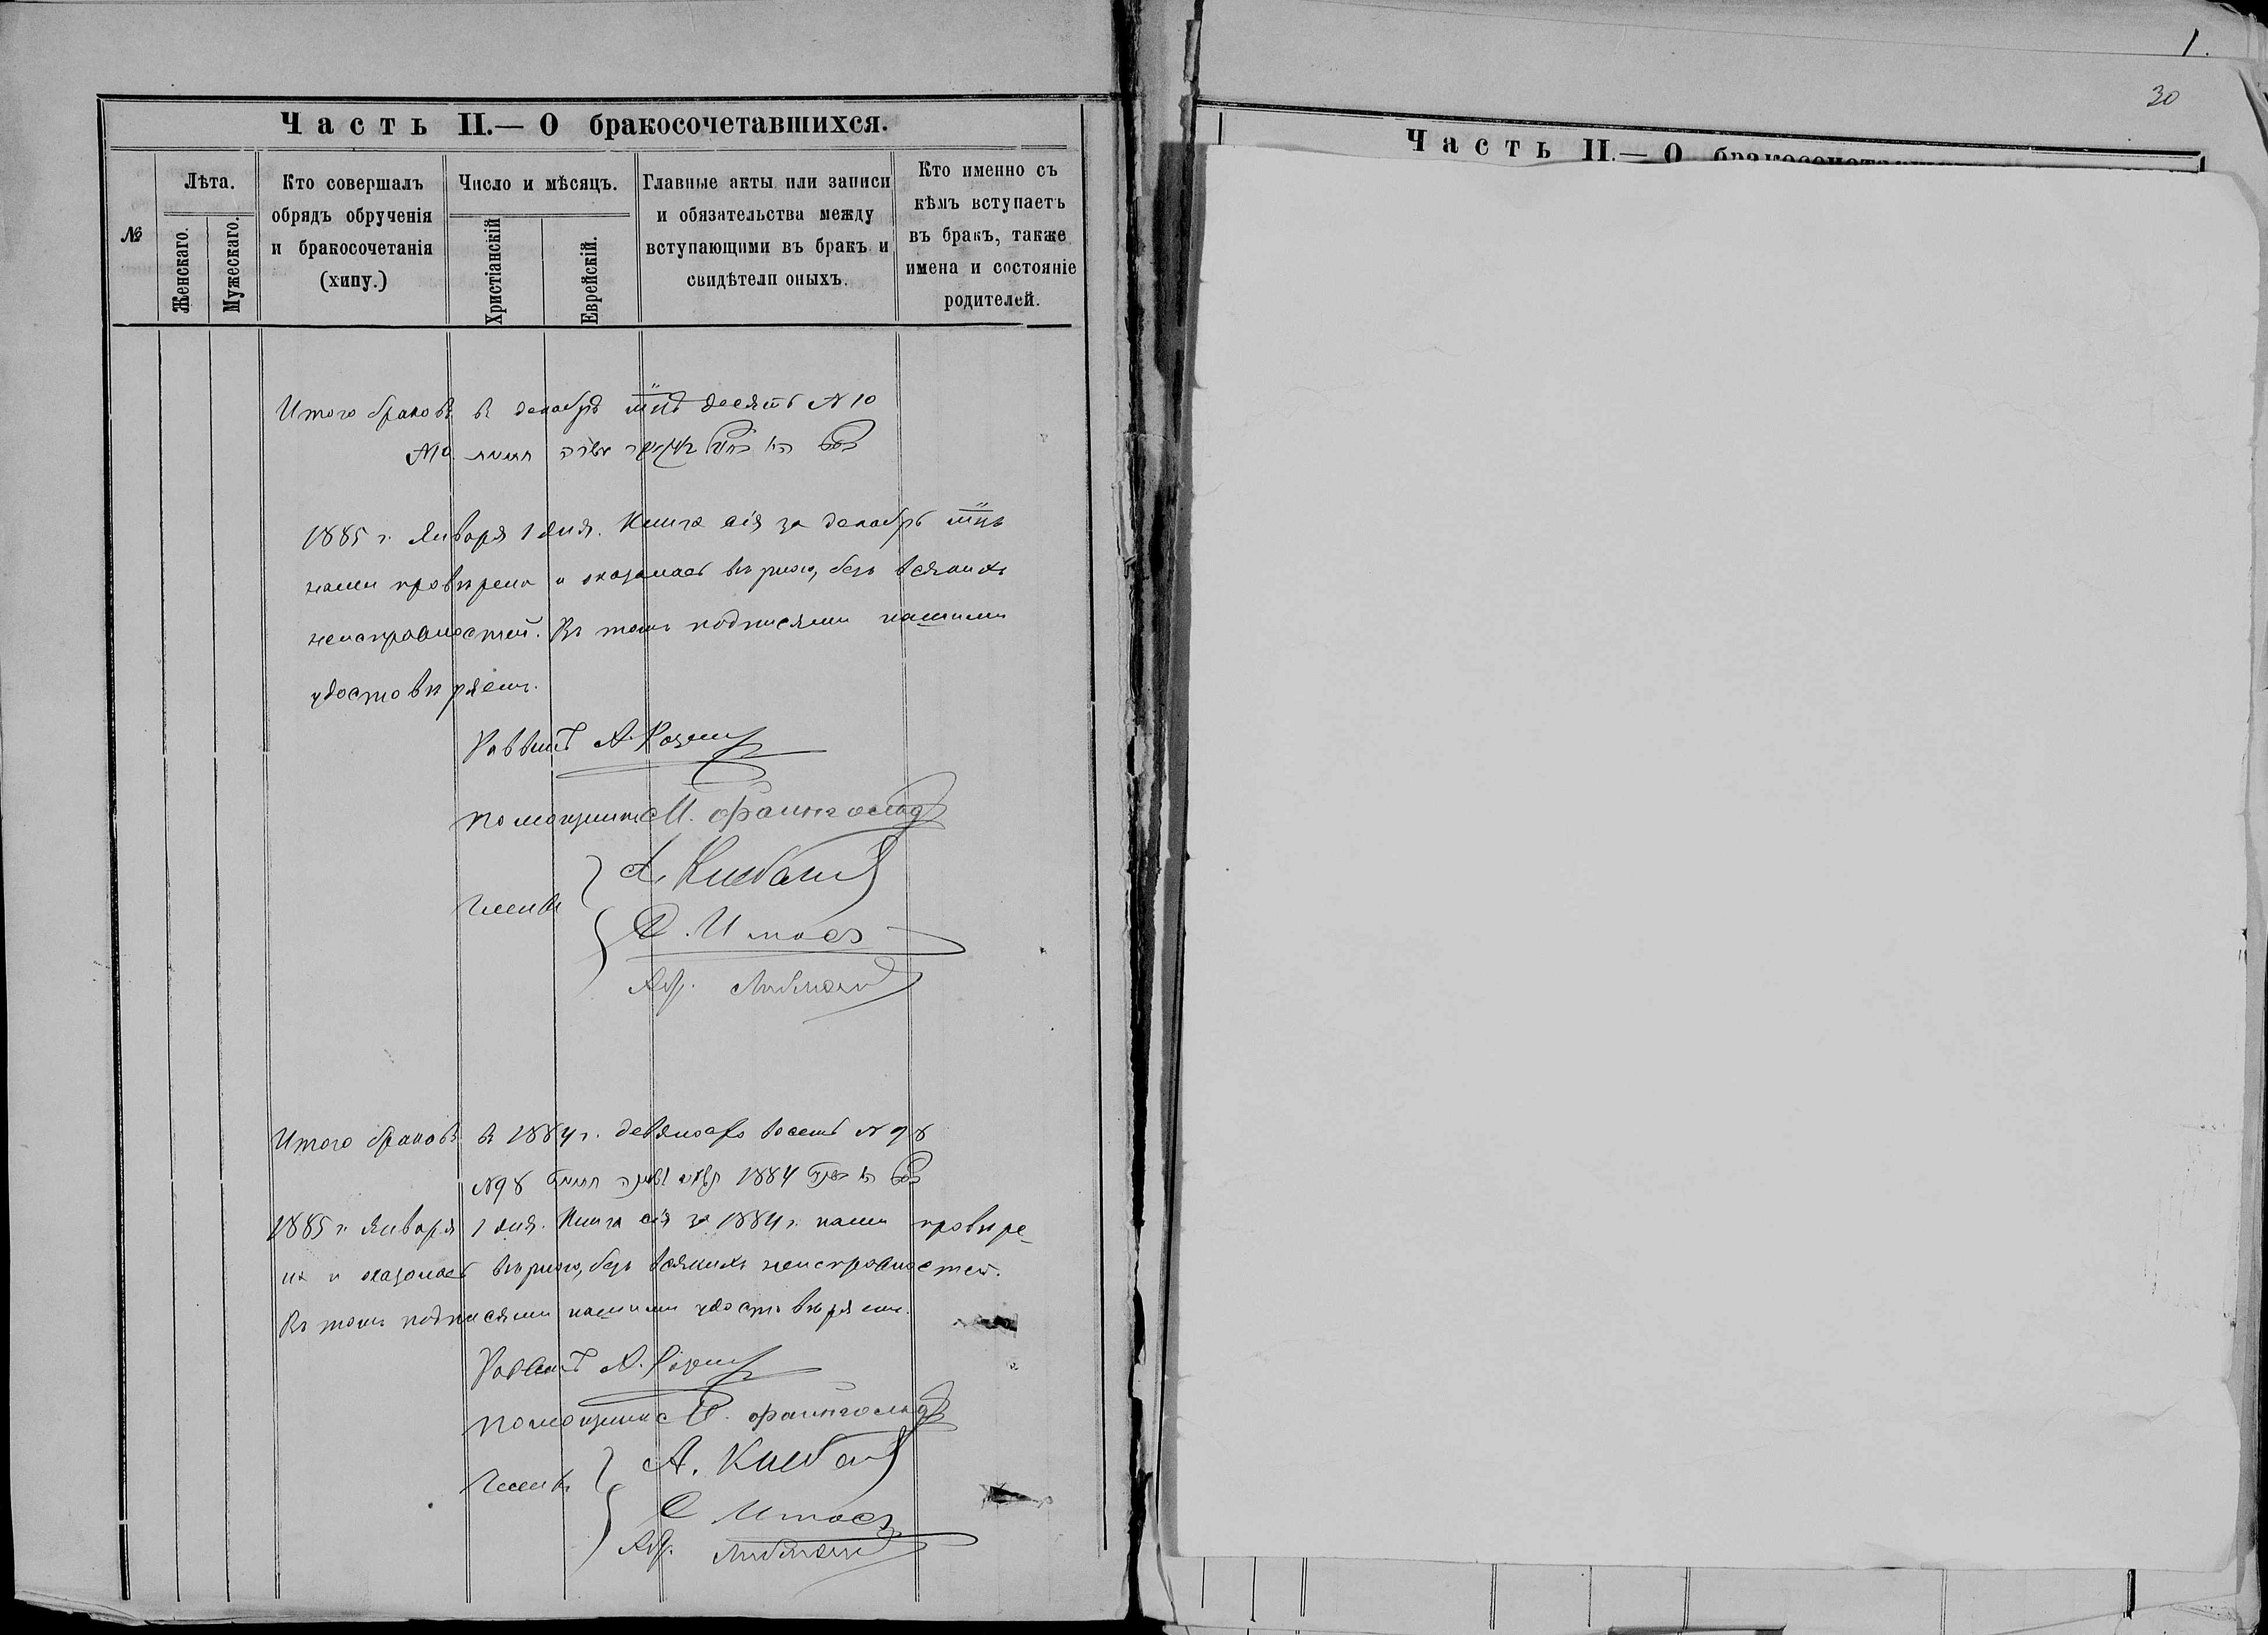 1.
30
Часть II.— О бракосочетавшихся.
№
Лѣта.
Женскаго.
Мужескаго.
Кто совершалъ
обрядъ обрученія
и бракосочетанія
(хипу.)
Число и мѣсяцъ.
Христіанскій
Еврейскій.
Главные акты или записи
и обязательства между
вступающими въ бракъ и
свидѣтели оныхъ.
Кто именно съ
кѣмъ вступаетъ
въ бракъ, также
имена и состояніе
родителей.
Итого браковъ въ декабрѣ мцѣ десять N 10
N10
1885 г. Января 1 дня. Книга сія за декабрь мцъ
нами провѣрена и оказалась вѣрною, безъ всякихъ
неисправностей. Въ томъ подписями нашими
удостовѣряемъ.
Раввинъ А. Розенъ
Помощникъ М. Файнгольдъ
Члены
Д. Итовъ
Абр. Либманъ
Итого браковъ въ 1884 г. девяносто восемь N 98
N98 1884
1885 г. Января 1 дня. Книга сія за 1884 г. нами провѣре-
на и оказалась вѣрною, безъ всякихъ неисправностей.
Въ томъ подписями нашими удостовѣряемъ.
Раввинъ А. Розенъ
Помощникъ М. Файнгольдъ
Члены
Абр. Либманъ
Часть II.— О